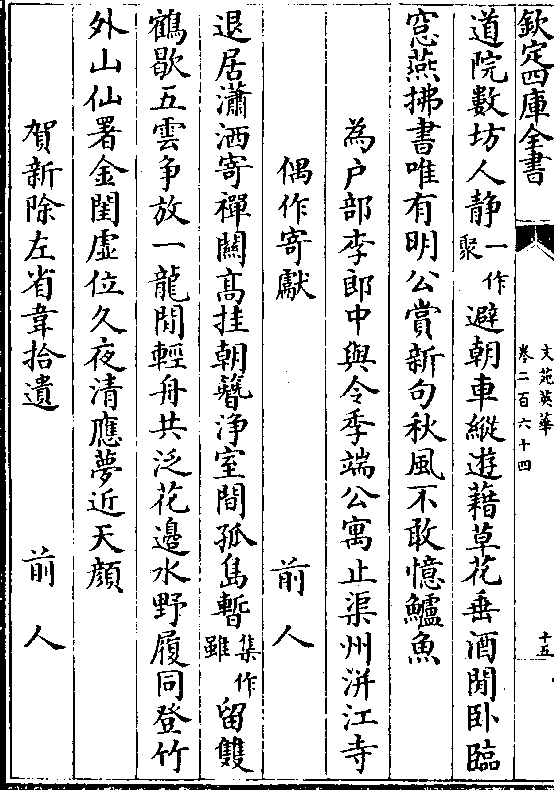 欽定四庫全書
文苑英華
卷二百六十四
十五
道院數坊人静一作聚避朝車縱遊藉草花垂酒閒卧臨
窓燕拂書唯有明公賞新句秋風不敢憶鱸魚
為户部李郎中與令季端公寓止渠州洴江寺
偶作寄獻
前人
退居瀟洒寄禪關髙挂朝簪浄室間孤島暫集作雖留雙
鶴歇五雲争放一龍閒輕舟共泛花邉水野履同登竹
外山仙署金閨虛位久夜清應夢近天顔
賀新除左省韋拾遺
前人